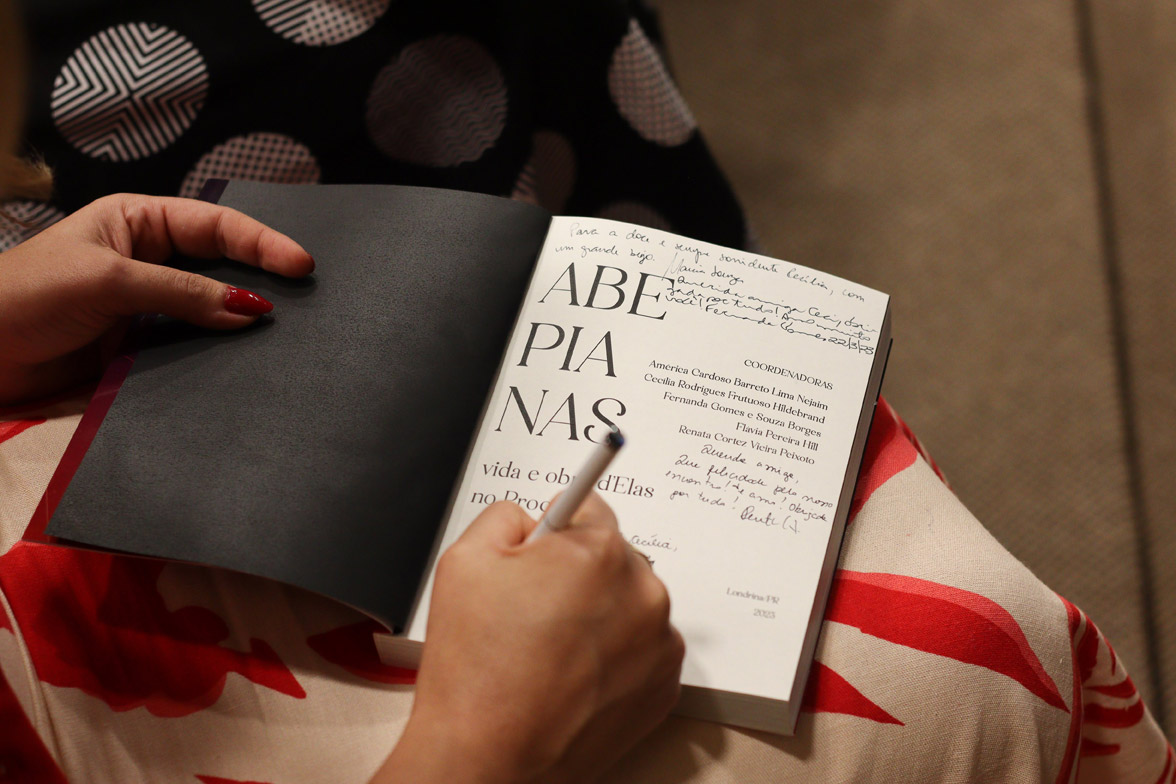 Para a doce e sempre sorridente Cecília, com
um grande beijo.
Querida amiga Ceci, obri-
gada por tudo! Amo muito
você! Fernanda Gomes 22/3/23
ABE
PIA
NAS
vida e obra d'Elas
no Proc
COORDENADORAS
America Cardoso Barreto Lima Nejaim
Cecilia Rodrigues Frutuoso Hildebrand
Fernanda Gomes e Souza Borges
Flavia Pereira Hill
Renata Cortez Vieira Peixoto
Querida amiga,
Que felicidade pelo nosso
encontro! Te amo! Obrigada
por tudo!
Cecília,
Londrina/PR
2023